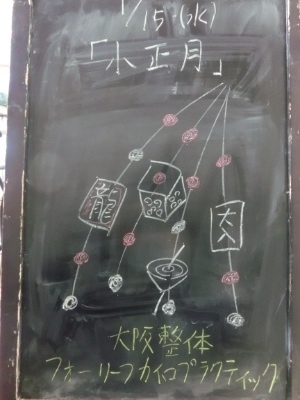 1/15(水)
「小正月」
龍
大阪整体
フォーリーフカイロプラクティック